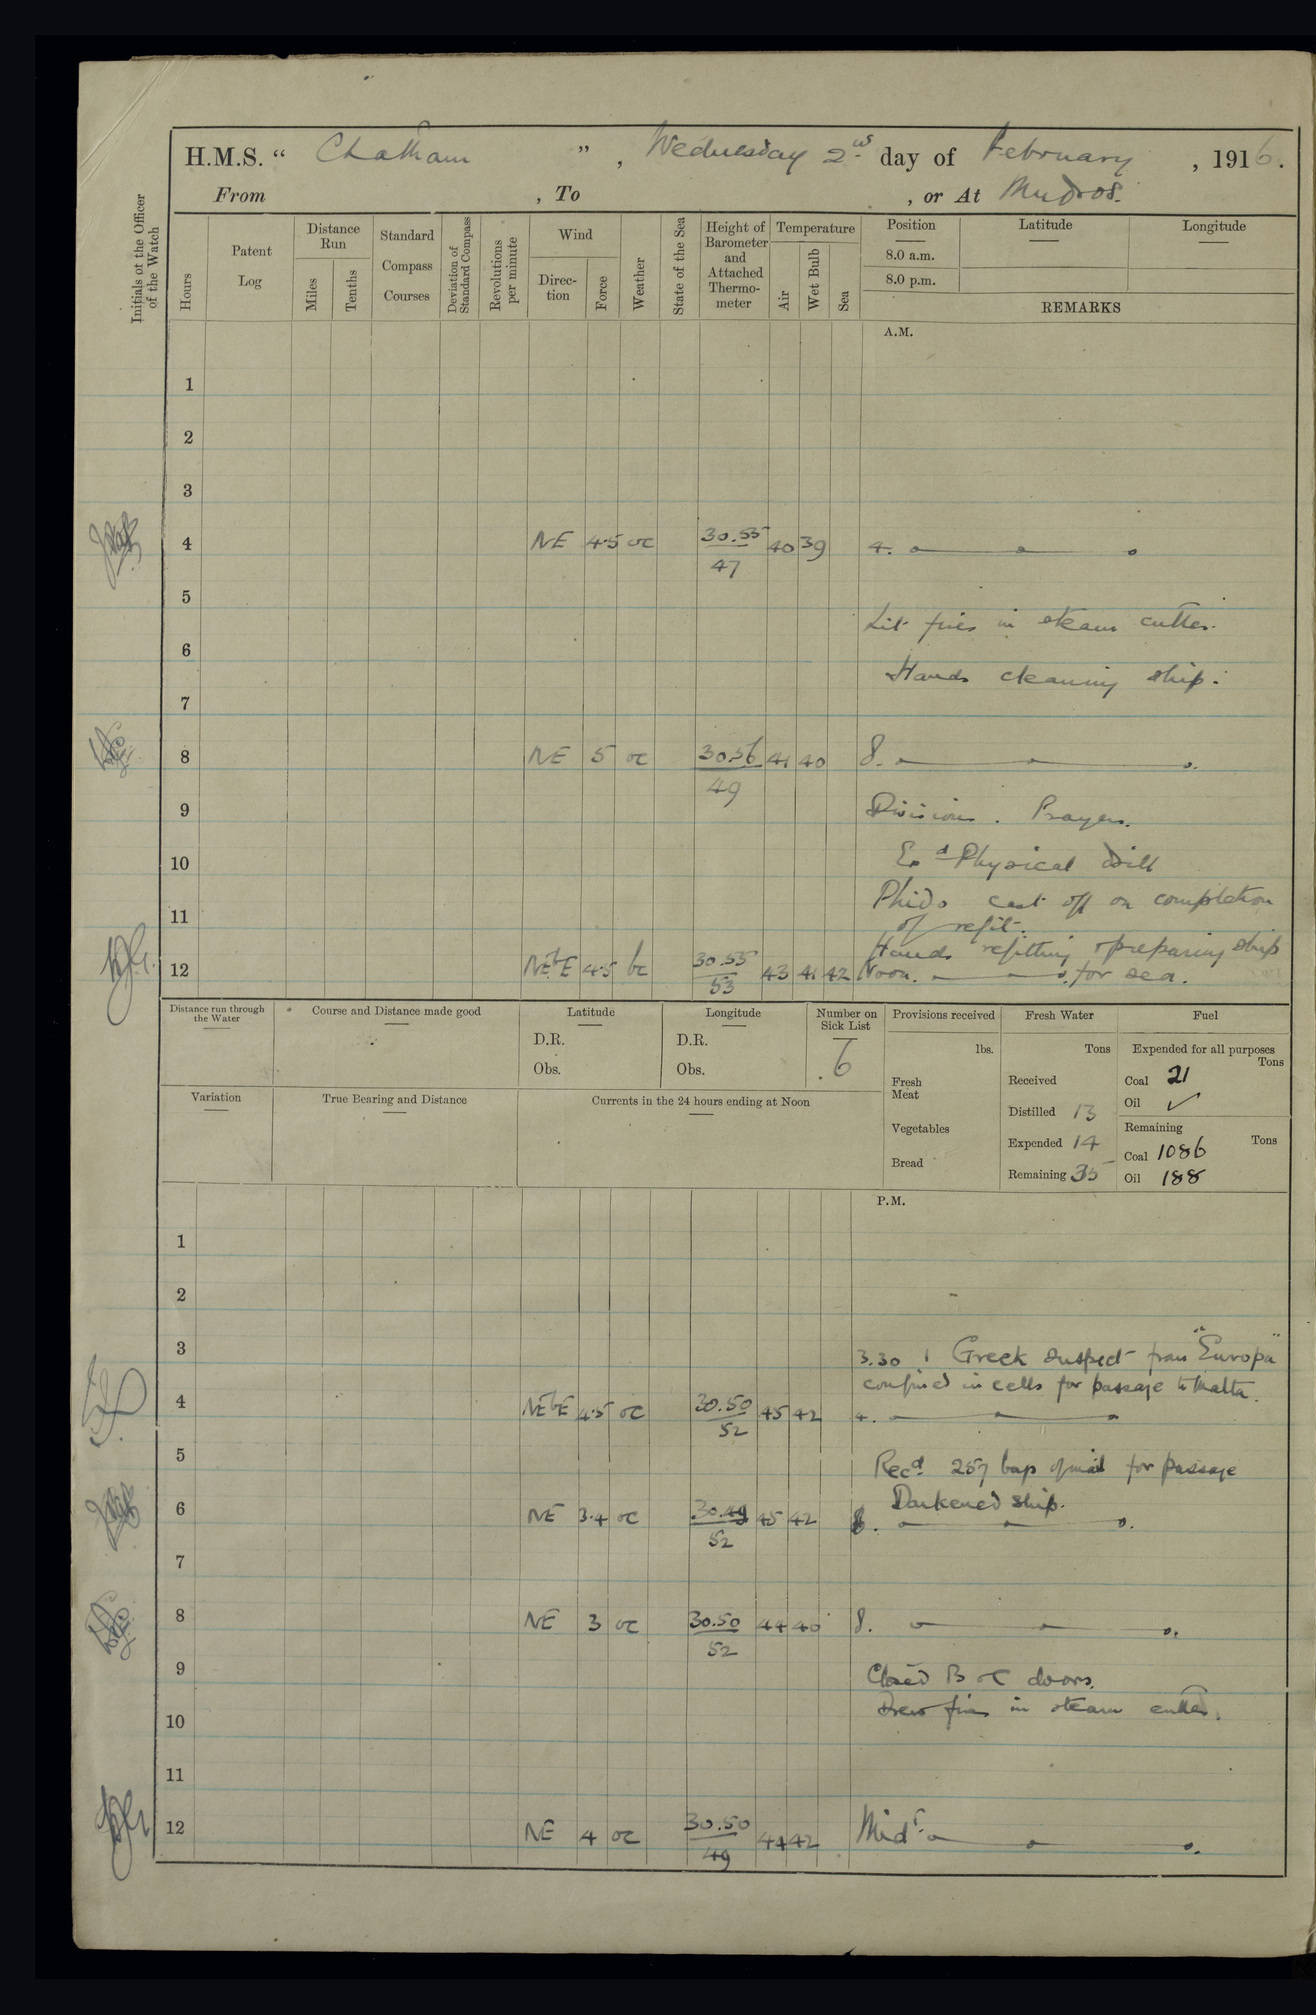 H.M.S. “ Chatham ” , Wednesday 2nd day of February , 1916.
From , To , or At Mudros.
Initials of the Officer of the Watch
Hours
Patent Log
Distance Run
Miles
Tenths
Standard Compass Courses
Deviation of Standard Compass
Revolutions per minute
Wind
Direction
Force
Weather
State of the Sea
Height of Barometer and Attached Thermometer
Temperature
Air
Wet Bulb
Sea
Position
8.0 a.m.
8.0 p.m.
Latitude
Longitude
REMARKS
A.M.
1
2
3
4 NE 4.5 oc 30.55 40 39 4.
47
5
Lit fires in steam cutter.
6
Hands cleaning ship.
7
8 NE 5 oc 30.56 41 40 8.
49
9 Divisions. Prayers.
10 Physical drill
cast off on completion
11 of refit.
Hands refitting & preparing ship
12 NEbE 4.5 bc 30.55 43 41 42 Noon. for sea.
53
Distance run through the Water
Course and Distance made good
Latitude
D.R.
Obs.
Longitude
D.R.
Obs.
Number on Sick List
6
Provisions received
lbs.
Fresh Meat
Vegetables
Bread
Fresh Water
Tons
Received
Distilled 13
Expended 14
Remaining 35
Fuel
Expended for all purposes
Tons
Coal 21
Oil ✓
Remaining
Tons
Coal 1086
Oil 188
Variation
True Bearing and Distance
Currents in the 24 hours ending at Noon
P.M.
1
2
3 3.30 1 Greek suspect from "Europa"
confined in cells for passage to Malta.
4 NEbE 4.5 oc 30.50 45 42 4.
52
5
Recd. 257 bags of mail for passage
Darkened ship.
6 NE 3.4 oc 30.49 45 42
52
7
8 NE 3 oc 30.50 44 40 8.
52
9 Closed B & C doors.
Drew fires in steam cutter.
10
11
12 NE 4 oc 30.50 44 42 Midt.
49